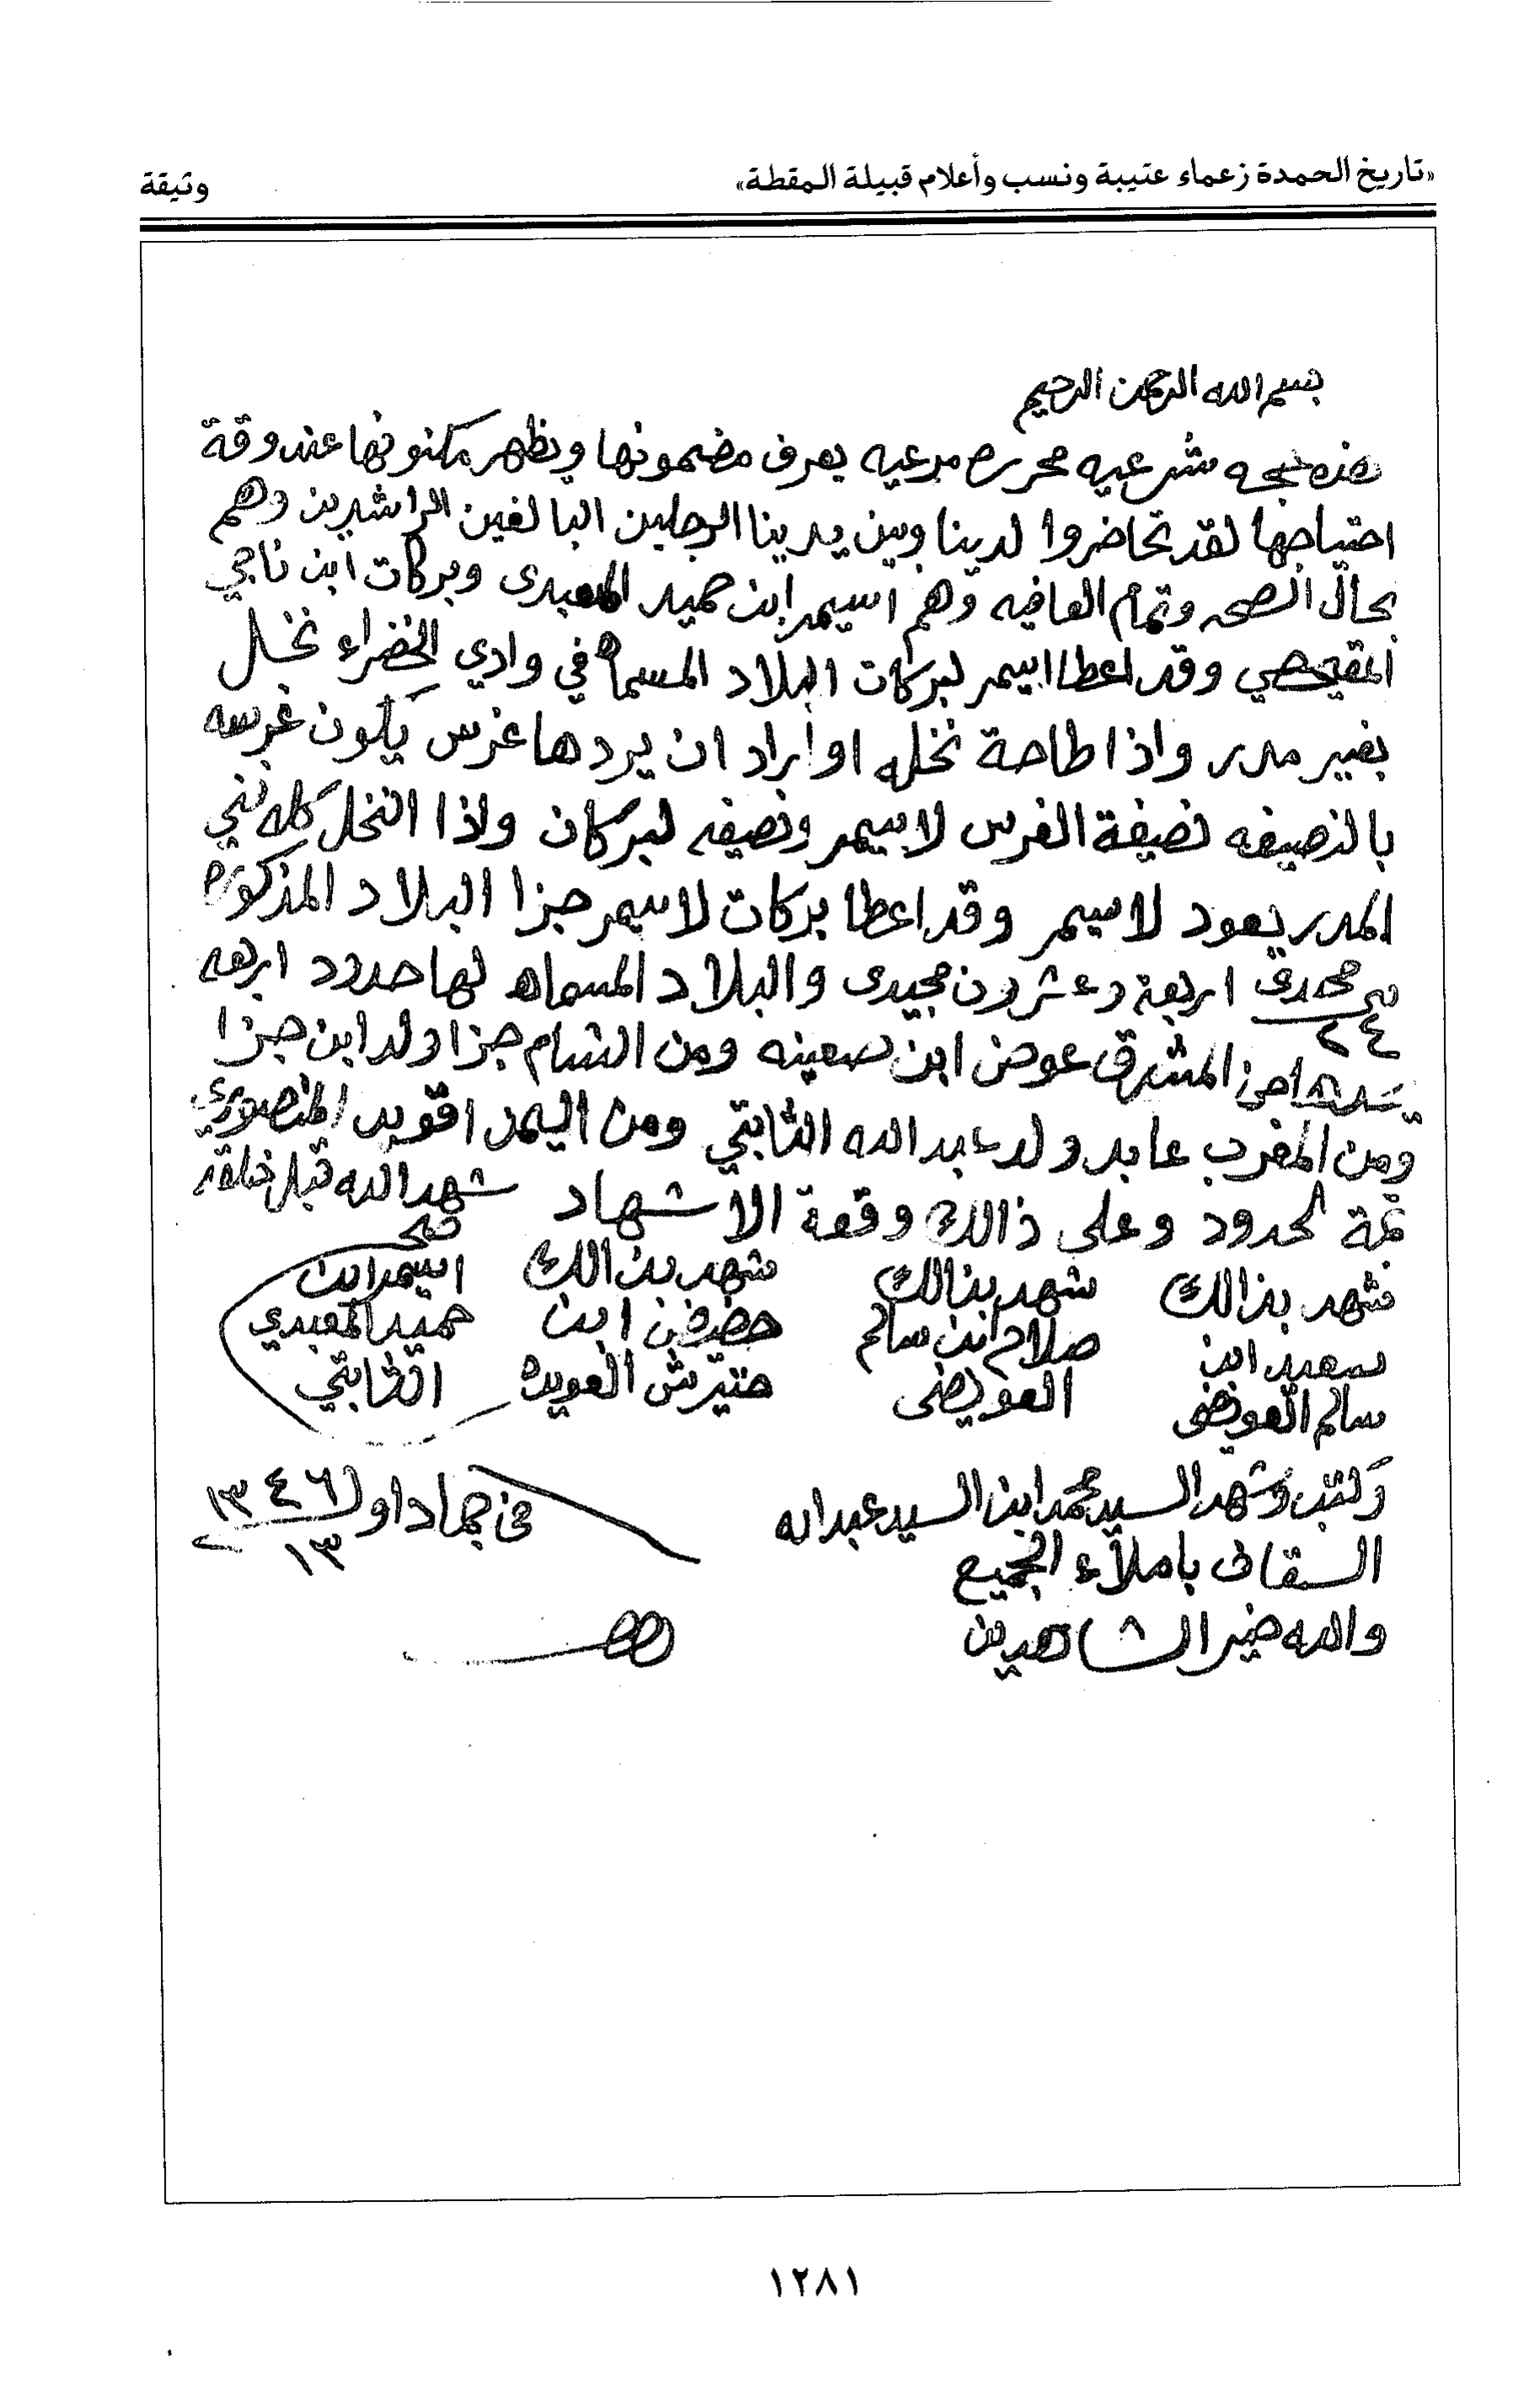 «تاريخ الحمدة زعماء عتيبة ونسب وأعلام قبيلة المقطة»
وثيقة
بسم الله الرحمن الرحيم
هذه حجه شرعيه محرره مرعيه يعرف مضمونها ويظهر مكنونها عند وقة
احتياجها لقد تحاضروا لدينا وبين يدينا الرجلين البالغين الراشدين وهم
بحال الصحه وتمام العافيه وهم اسيمر ابن حميد المعبدى وبركات ابن ناجي
المقيحصي وقد اعطا اسيمر لبركات البلاد المسماه في وادي الخضراء نخل
بغير مدر واذا طاحة نخله او اراد ان يردها غرس يكون غرسه
بالنصيفه نصيفة الغرس لاسيمر ونصيفه لبركات واذا النخل كله فني
المدر يعود لاسيمر وقد اعطا بركات لاسيمر جزا البلاد المذكوره
اربعة وعشرون مجيدى والبلاد المسماه لها حدود اربعه
٢٤
المشرق عوض ابن صعينه ومن الشام جزا ولد ابن جزا
ومن المغرب عابد ولد عبدالله الثابتي ومن اليمن اقويد المنصوري
تمة الحدود وعلى ذالك وقعة الاشهاد شهد الله قبل خلقه
شهد بذالك
سعيد ابن
سالم العويضى
شهد بذالك
صلاح ابن سالم
العويضى
شهد بذالك
ابن
العويده
صح
اسيمر ابن
حميد المعبدي
الثابتي
وكتب وشهد السيد محمد ابن السيد عبدالله
السقاف باملاء الجميع
والله خير الشاهدين
فى جماد اول ١٣٤٦
١٣
١٢٨١